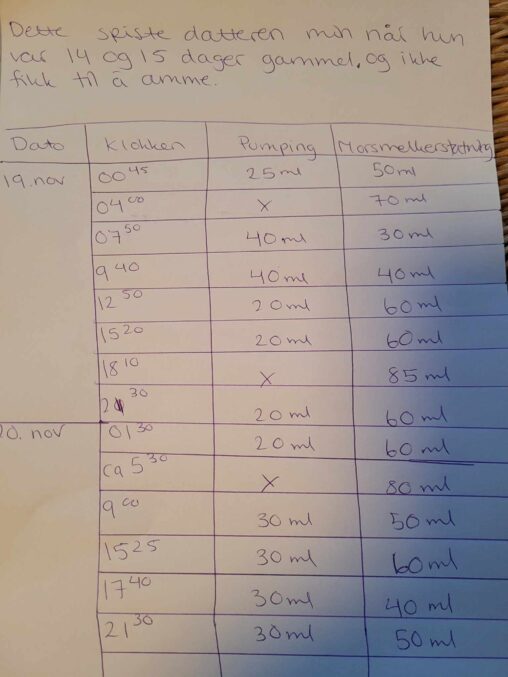 Dette spiste datteren min når hun
var 14 og 15 dager gammel, og ikke
fikk til å amme.
Dato Klokken Pumping Morsmelkerstatning
19. nov 00 45 25 ml 50 ml
04 00 x 70 ml
07 50 40 ml 30 ml
9 40 40 ml 40 ml
12 50 20 ml 60 ml
15 20 20 ml 60 ml
18 10 x 85 ml
30 20 ml 60 ml
20. nov 01 30 20 ml 60 ml
ca 5 30 x 80 ml
9 00 30 ml 50 ml
15 25 30 ml 60 ml
17 40 30 ml 40 ml
21 30 30 ml 50 ml